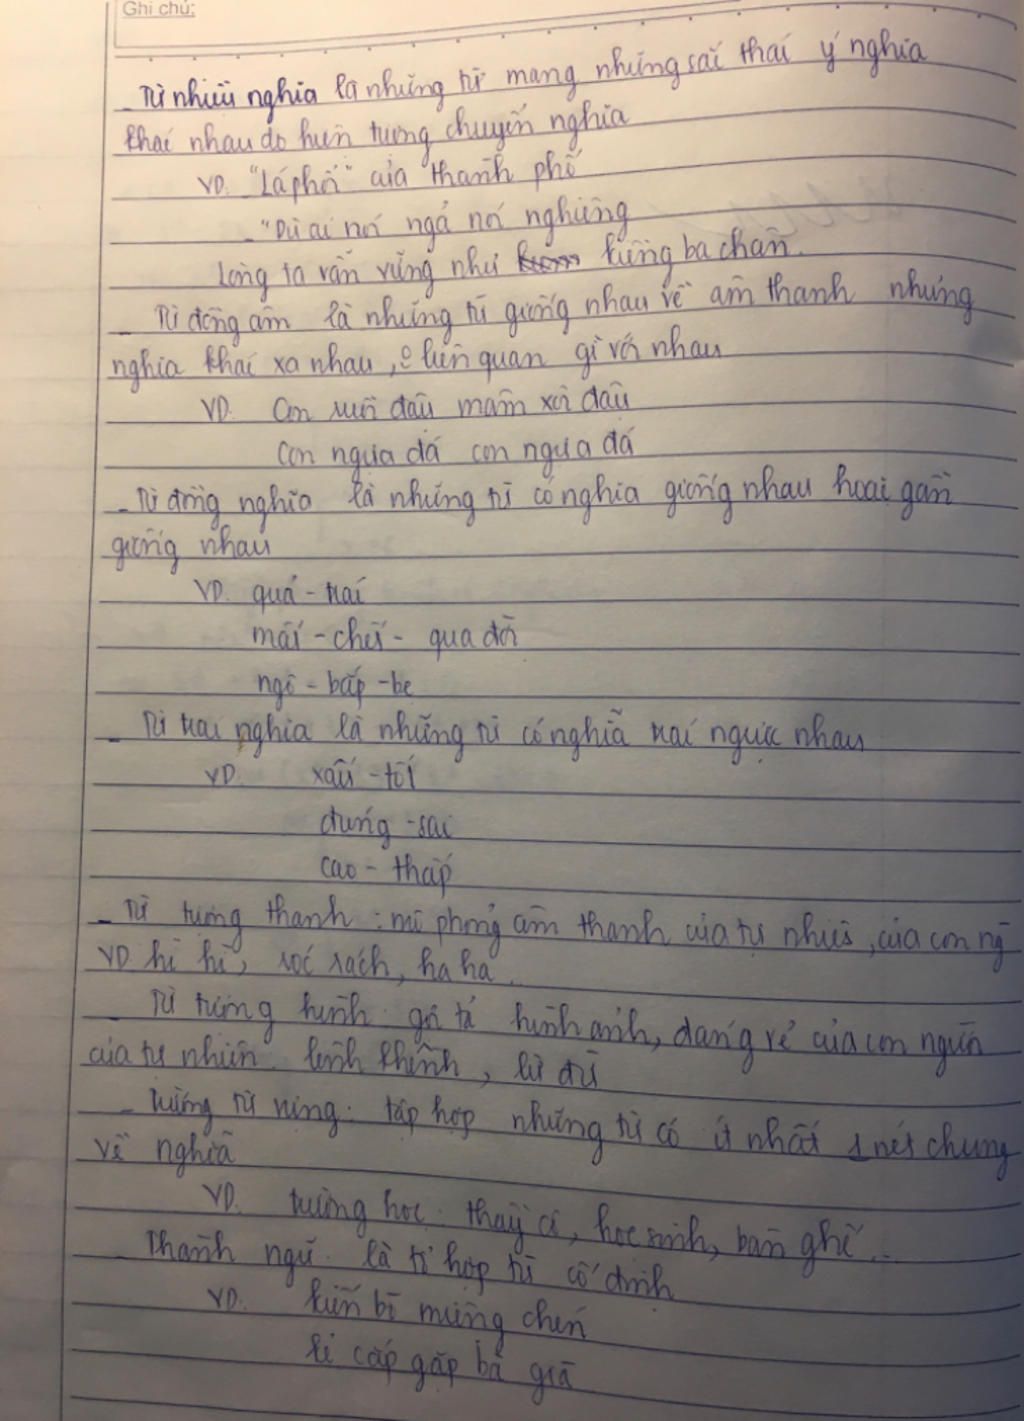 Ghi chú:
- Từ nhiều nghĩa là những từ mang những sắc thái ý nghĩa
khác nhau do hiện tượng chuyển nghĩa
VD. "Lá phổi" của thành phố
- "Dù ai nói ngả nói nghiêng
Lòng ta vẫn vững như kiềng ba chân.
- Từ đồng âm là những từ giống nhau về âm thanh nhưng
nghĩa khác xa nhau, o liên quan gì với nhau
VD. Con ruồi đậu mâm xôi đậu
Con ngựa đá con ngựa đá
- Từ đồng nghĩa là những từ có nghĩa giống nhau hoặc gần
giống nhau
VD. quả - trái
mất - chết - qua đời
ngô - bắp - bẹ
- Từ trái nghĩa là những từ có nghĩa trái ngược nhau
VD. xấu - tốt
đúng - sai
cao - thấp
- Từ tượng thanh: mô phỏng âm thanh của tự nhiên, của con ng
VD hì hì, sọc sạch, ha ha...
- Từ tượng hình. gợi tả hình ảnh, dáng vẻ của con người
của tự nhiên. lênh khênh, lừ đừ
- Trường từ vựng: tập hợp những từ có ít nhất 1 nét chung
về nghĩa
VD. trường học. thầy cô, học sinh, bàn ghế...
- Thành ngữ. là tổ hợp từ cố định
VD. kiến bò miệng chén
kẻ cắp gặp bà già